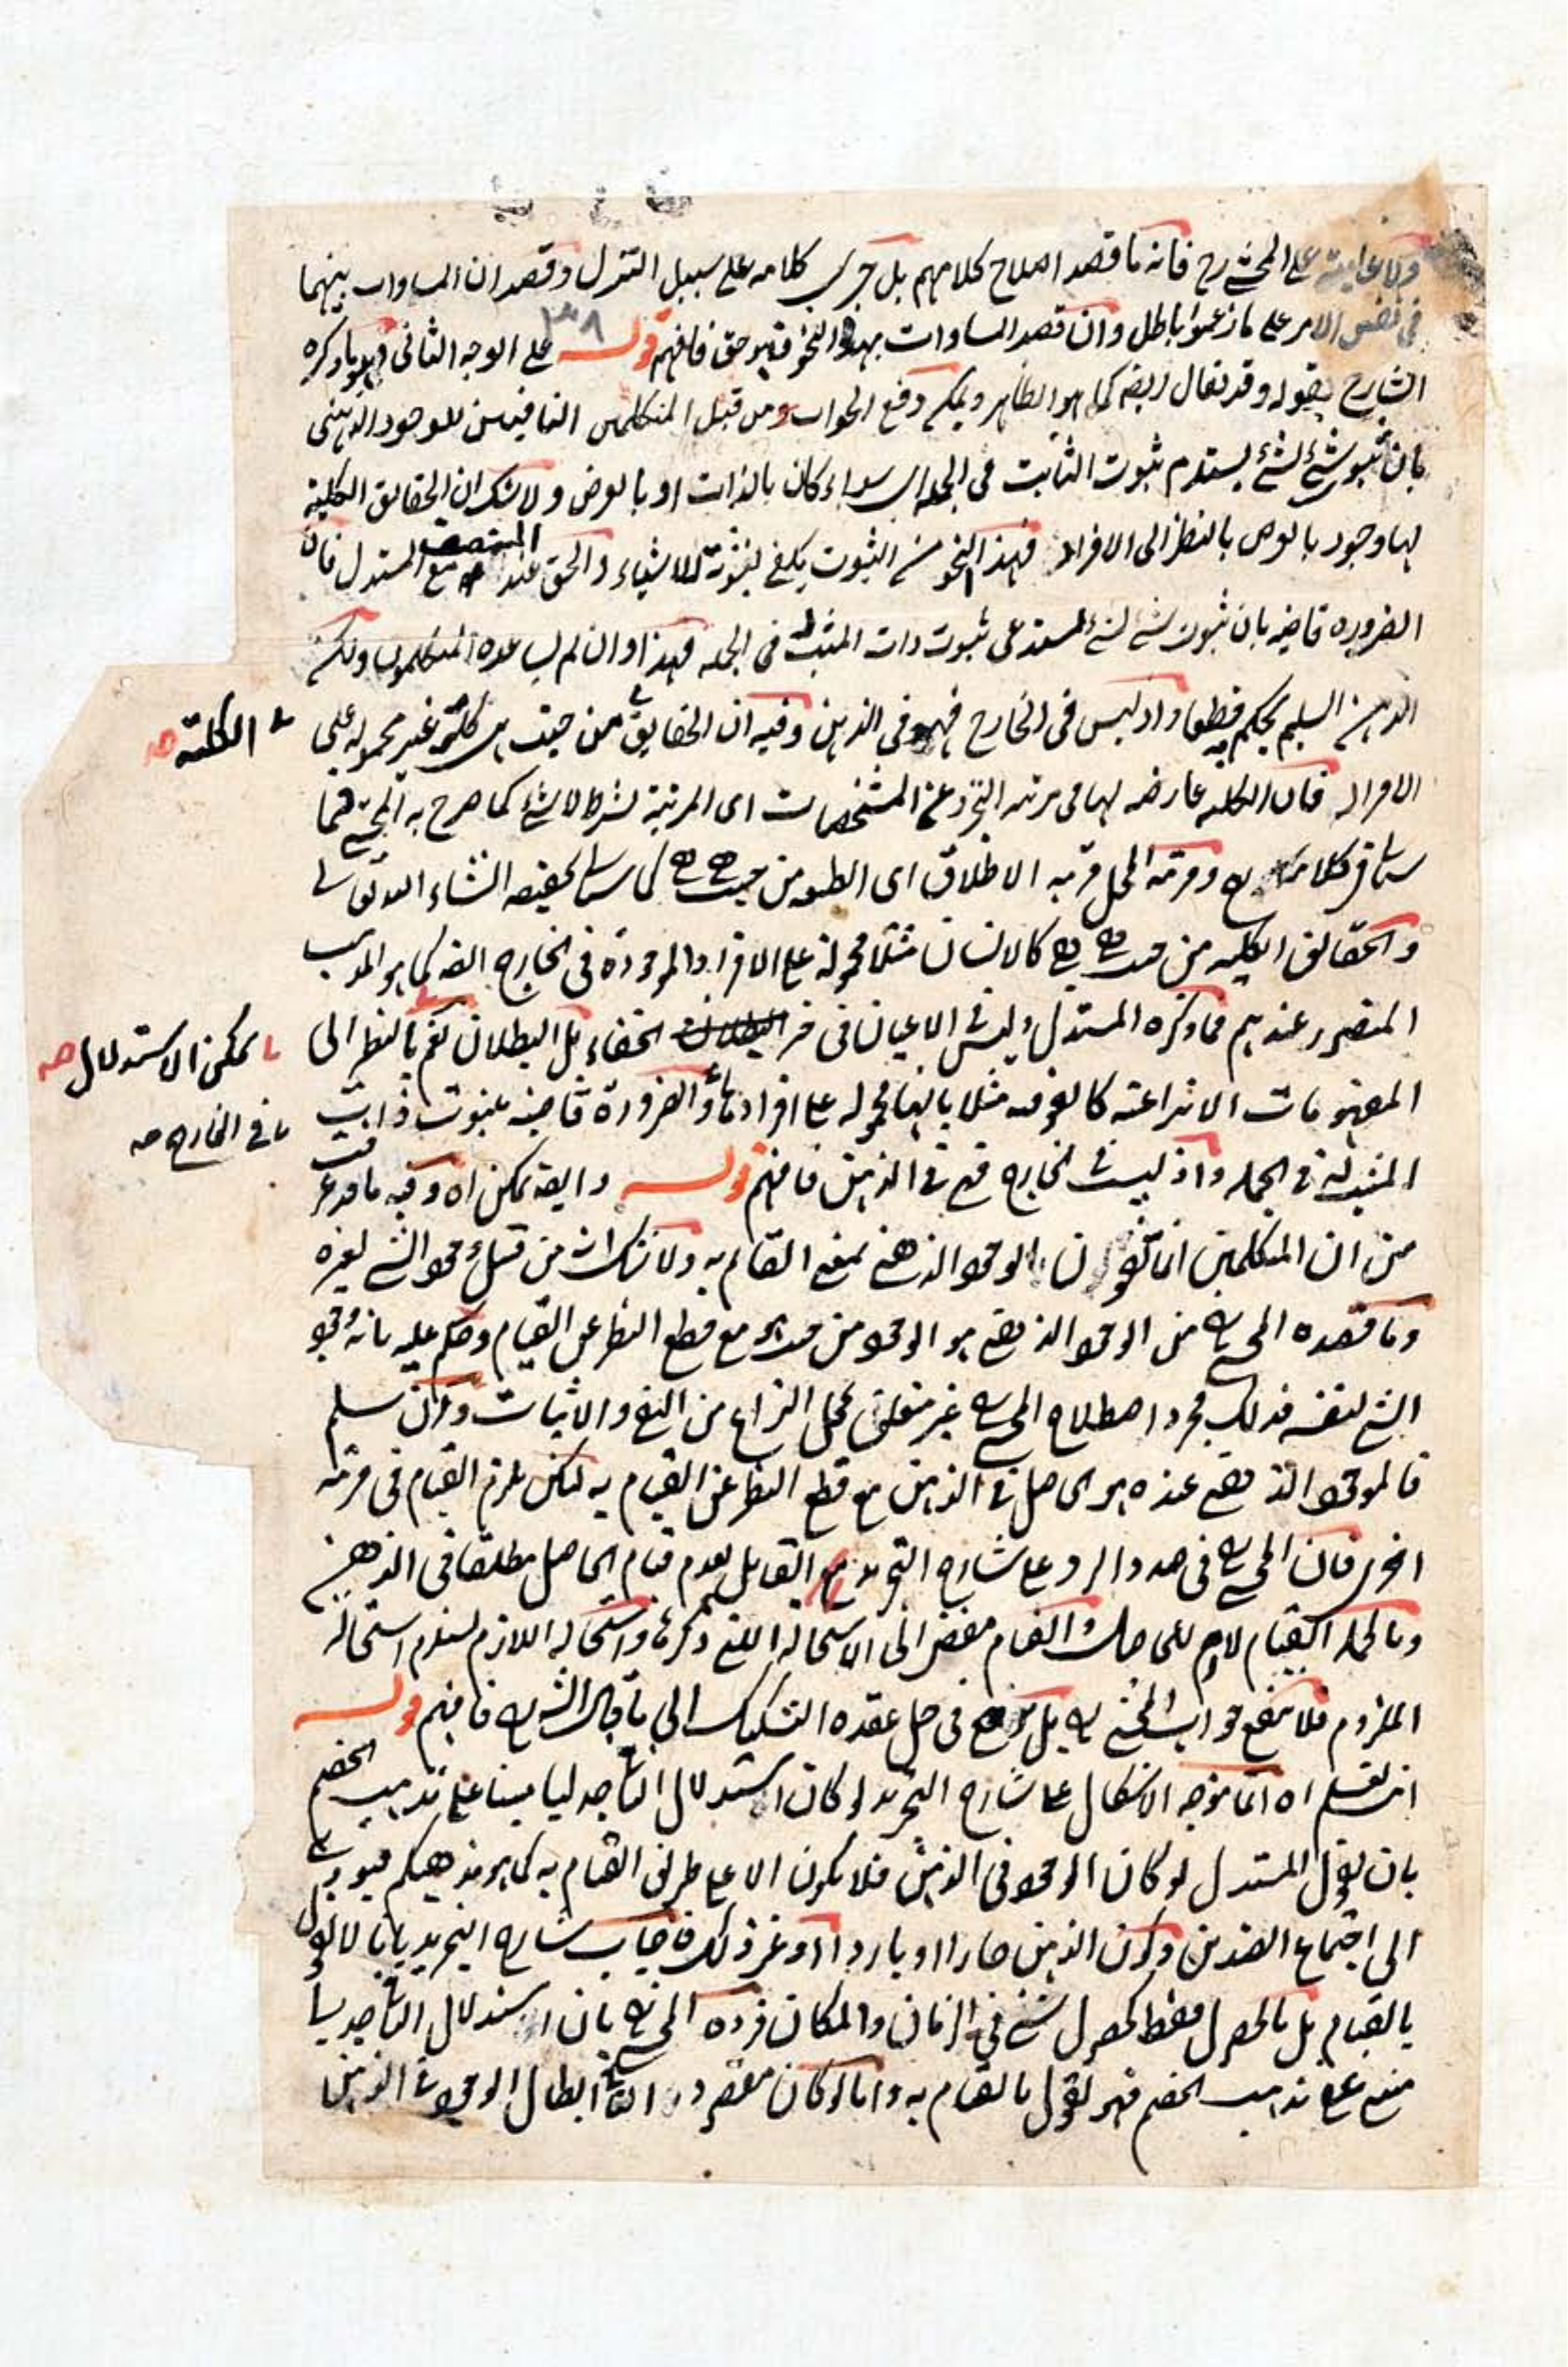 على المحشي رح فانه ما قصد اصلاح كلامهم بل جرى كلامه على سبيل التنزل وقصد ان المساوات بينهما
في نفس الامر على ما زعموا باطل وان قصد المساوات بهذا النحو فهو حق فافهم قوله على الوجه الثاني فهو ما ذكره
الشارح بقوله وقد يقال ايضا كما هو الظاهر ويمكن دفع الجواب من قبل المتكلمين النافيين للوجود الذهني
بان ثبوت شئ لشئ يستلزم ثبوت الثابت في الجملة اي سواء كان بالذات او بالعرض ولا شك ان الحقايق الكلية
لها وجود بالعرض بالنظر الى الافراد فهذا النحو من الثبوت يكفي لثبوته للاشياء والحق عند المنصف مع المستدل فان
الضرورة قاضيه بان ثبوت شئ لشئ يستدعي ثبوت ذات المثبت له في الجمله فهذا وان لم يساعده المتكلمون ولكن
الذهن السليم يحكم به قطعا واذ ليس في الخارج فهو في الذهن وفيه ان الحقايق من حيث هي كلية غير محموله على
الكلية صح
الافراد فان الكليه عارضه لها في مرتبه التجرد عن المشخصات اى المرتبة بشرط لا شئ كما صرح به المحشي فيما
سياتي كلامه ومرتبة الحمل مرتبه الاطلاق اى الطبيعه من حيث هي هي كما سياتي تحقيقه انشاء الله تعالى
والحقائق الكليه من حيث هي هي كالانسان مثلا محمولة على الافراد والموجودة في الخارج ايضا كما هو المذهب
المنصور عندهم فما ذكره المستدل وليس في الاعيان في حيز الخفاء بل البطلان نعم بالنظر الى
يمكن الاستدلال صح
المفهومات الانتزاعية كالفوقيه مثلا بانها محموله على افرادها والضرورة قاضيه بثبوت ذات
في الخارج صح
المثبت له في الجمله واذ ليست في الخارج فهي في الذهن فافهم قوله وايضا يمكن اه وفيه ما قد عرفت
من ان المتكلمين انما ينفون الوجود الذهني بمعنى القيام به ولا شك انه من قبيل وجود الشئ لغيره
وما قصده المحشي من الوجود الذهني هو الوجود من حيث هو مع قطع النظر عن القيام وحكم عليه بانه وجود
الشئ لنفسه فذلك مجرد اصطلاح المحشي غير متعلق بمحل النزاع من النفي والاثبات وان سلم
فالموجود الذهني عنده هو الحاصل في الذهن مع قطع النظر عن القيام به لكن يلزم القيام في مرتبه
اخرى فان المحشي في صدد الرد على شارح التجريد القايل بعدم قيام الحاصل مطلقا في الذهن
وبالجمله القيام لازم للحاصل والقيام مفض الى الاستحالة التي ذكرها واستحاله اللازم يستلزم استحاله
الملزوم فلا ينفع جواب المحشي بل في حل عقده التشكيك الى ما قال الشارح فافهم قوله
انت تعلم اه انما يتوجه الاشكال على شارح التجريد لو كان استدلال النافي جدليا مبنيا على مذهب الخصم
بان يقول المستدل لو كان الوجود في الذهن فلا يكون الا على طريق القيام به كما هو مذهبكم فيؤدي
الى اجتماع الضدين وكون الذهن حارا او باردا او غير ذلك فاجاب شارح التجريد بانا لا نقول
بالقيام بل بالحصول فقط كحصول شئ في الزمان والمكان فرده المحشي بان استدلال النافي جدليا
مبني على مذهب الخصم فهو يقول بالقيام به واما لو كان مقصوده النافي ابطال الوجود في الذهن